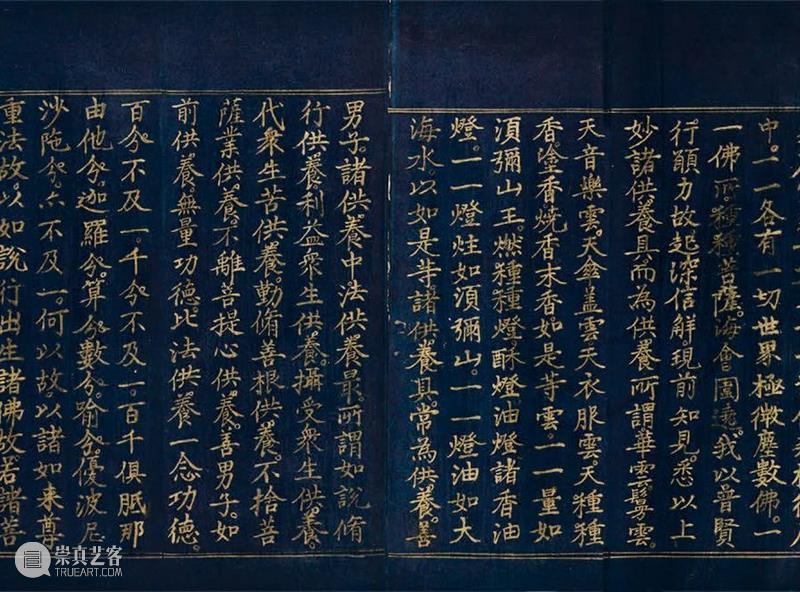 中。一一各有一切世界極微塵數佛。一
一佛所。種種菩薩海會圍遶。我以普賢
行願力故起深信解。現前知見。悉以上
妙諸供養具而為供養。所謂華雲鬘雲。
天音樂雲。天傘盖雲天衣服雲。天種種
香。塗香燒香末香如是等雲。一一量如
湏彌山王。燃種種燈。酥燈油燈諸香油
燈。一一燈炷如湏彌山。一一燈油如大
海水。以如是等諸供養具。常為供養。善
男子。諸供養中法供養最。所謂如說脩
行供養。利益衆生供養。攝受衆生供養。
代衆生苦供養。勤脩善根供養。不捨菩
薩業供養。不離菩提心供養。善男子。如
前供養。無量功德。比法供養一念功德。
百分不及一。千分不及一。百千俱胝那
由他分。迦羅分。算分。數分。喻分。優波尼
沙陁分。亦不及一。何以故。以諸如来尊
重法故。以如說行出生諸佛故若諸菩
崇真艺客
TRUEART.COM